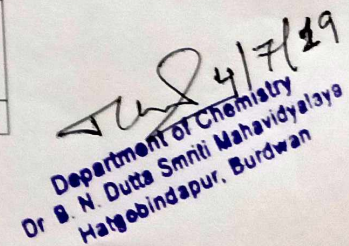 4/7/19
Department of Chemistry
Dr B. N. Dutta Smriti Mahavidyalaya
Hatgobindapur, Burdwan